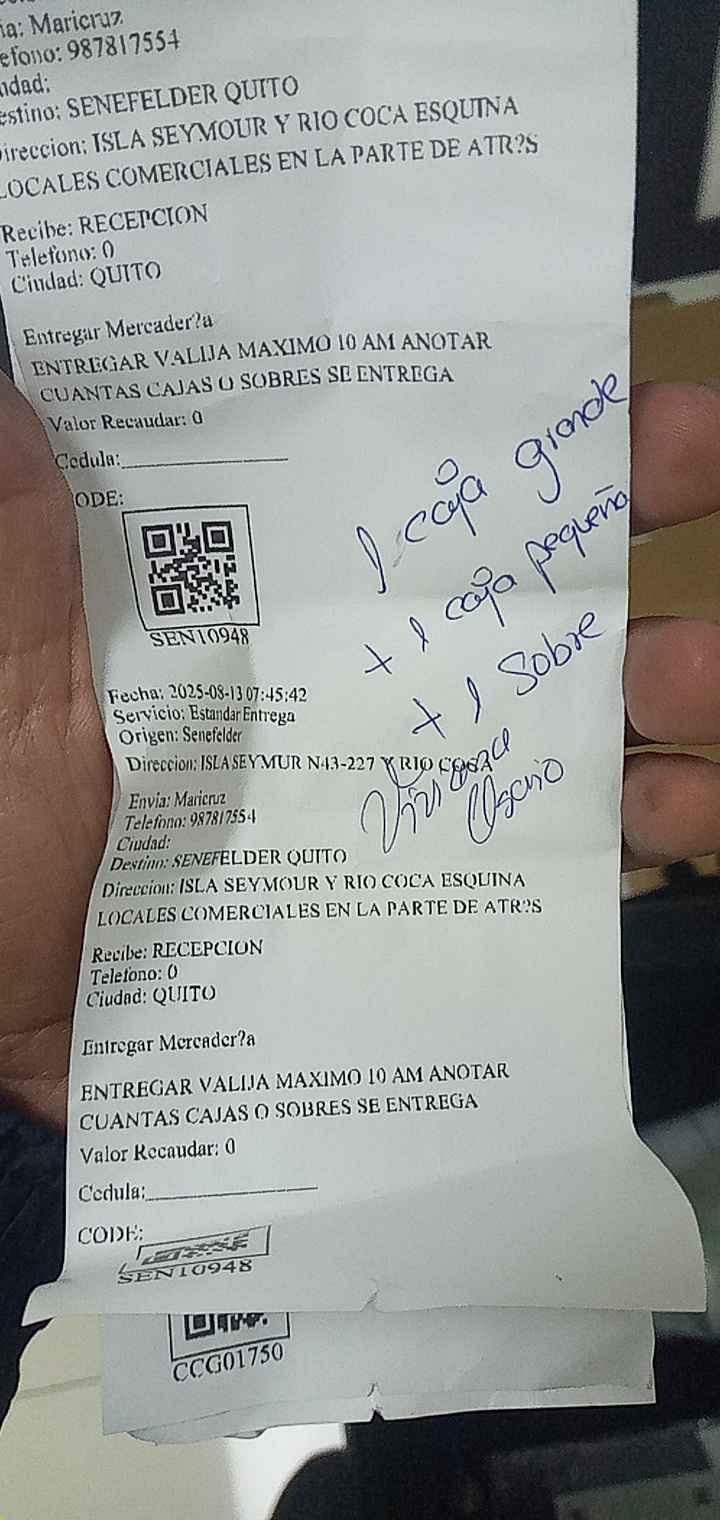 ia: Maricruz
efono: 987817554
udad:
estino: SENEFELDER QUITO
Direccion: ISLA SEYMOUR Y RIO COCA ESQUINA
LOCALES COMERCIALES EN LA PARTE DE ATR?S
Recibe: RECEPCION
Telefono: 0
Ciudad: QUITO
Entregar Mercader?a
ENTREGAR VALIJA MAXIMO 10 AM ANOTAR
CUANTAS CAJAS O SOBRES SE ENTREGA
Valor Recaudar: 0
Cedula:
ODE:
SEN10948
1 caja grande
+ 1 caja pequeña
+ 1 Sobre
Viviana
Fecha: 2025-08-13 07:45:42
Servicio: Estandar Entrega
Origen: Senefelder
Direccion: ISLA SEYMUR N43-227 Y RIO COCA
Envia: Maricruz
Telefono: 987817554
Ciudad:
Destino: SENEFELDER QUITO
Direccion: ISLA SEYMOUR Y RIO COCA ESQUINA
LOCALES COMERCIALES EN LA PARTE DE ATR?S
Recibe: RECEPCION
Telefono: 0
Ciudad: QUITO
Entregar Mercader?a
ENTREGAR VALIJA MAXIMO 10 AM ANOTAR
CUANTAS CAJAS O SOBRES SE ENTREGA
Valor Recaudar: 0
Cedula:
CODE:
SEN10948
CCG01750